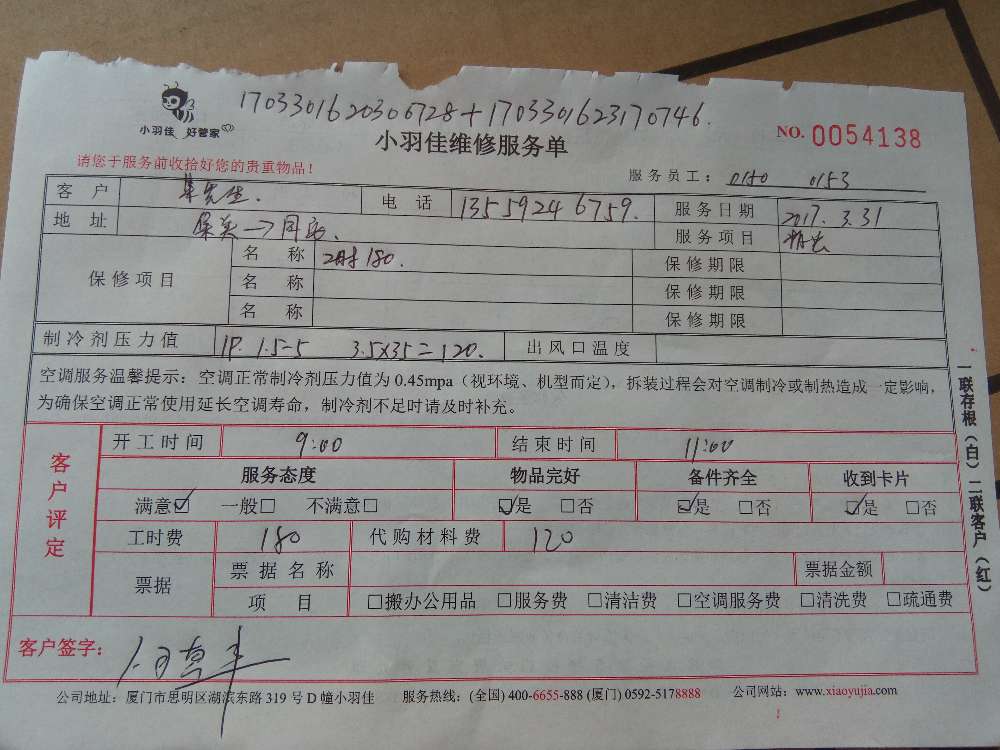 1703301620306728+1703301623170746.
小羽佳 好管家
小羽佳维修服务单
NO. 0054138
请您于服务前收拾好您的贵重物品！
服务员工： 0150 0153
客 户 先生. 电 话 13559246759. 服务日期 2017. 3.31
地 址 服务项目
保修项目 名 称 180. 保修期限
名 称 保修期限
名 称 保修期限
制冷剂压力值 1P. 1.5-5 3.5X35=120. 出风口温度
空调服务温馨提示：空调正常制冷剂压力值为 0.45mpa（视环境、机型而定），拆装过程会对空调制冷或制热造成一定影响，
为确保空调正常使用延长空调寿命，制冷剂不足时请及时补充。
客户评定
开工时间 9:00 结束时间 11:00
服务态度 物品完好 备件齐全 收到卡片
满意☑ 一般□ 不满意□ ☑是 □否 ☑是 □否 ☑是 □否
工时费 180 代购材料费 120
票据 票据名称 票据金额
项 目 □搬办公用品 □服务费 □清洁费 □空调服务费 □清洗费 □疏通费
客户签字：
一联存根（白）二联客户（红）
公司地址：厦门市思明区湖滨东路 319 号 D 幢小羽佳 服务热线：(全国) 400-6655-888 (厦门) 0592-5178888 公司网站：www.xiaoyujia.com